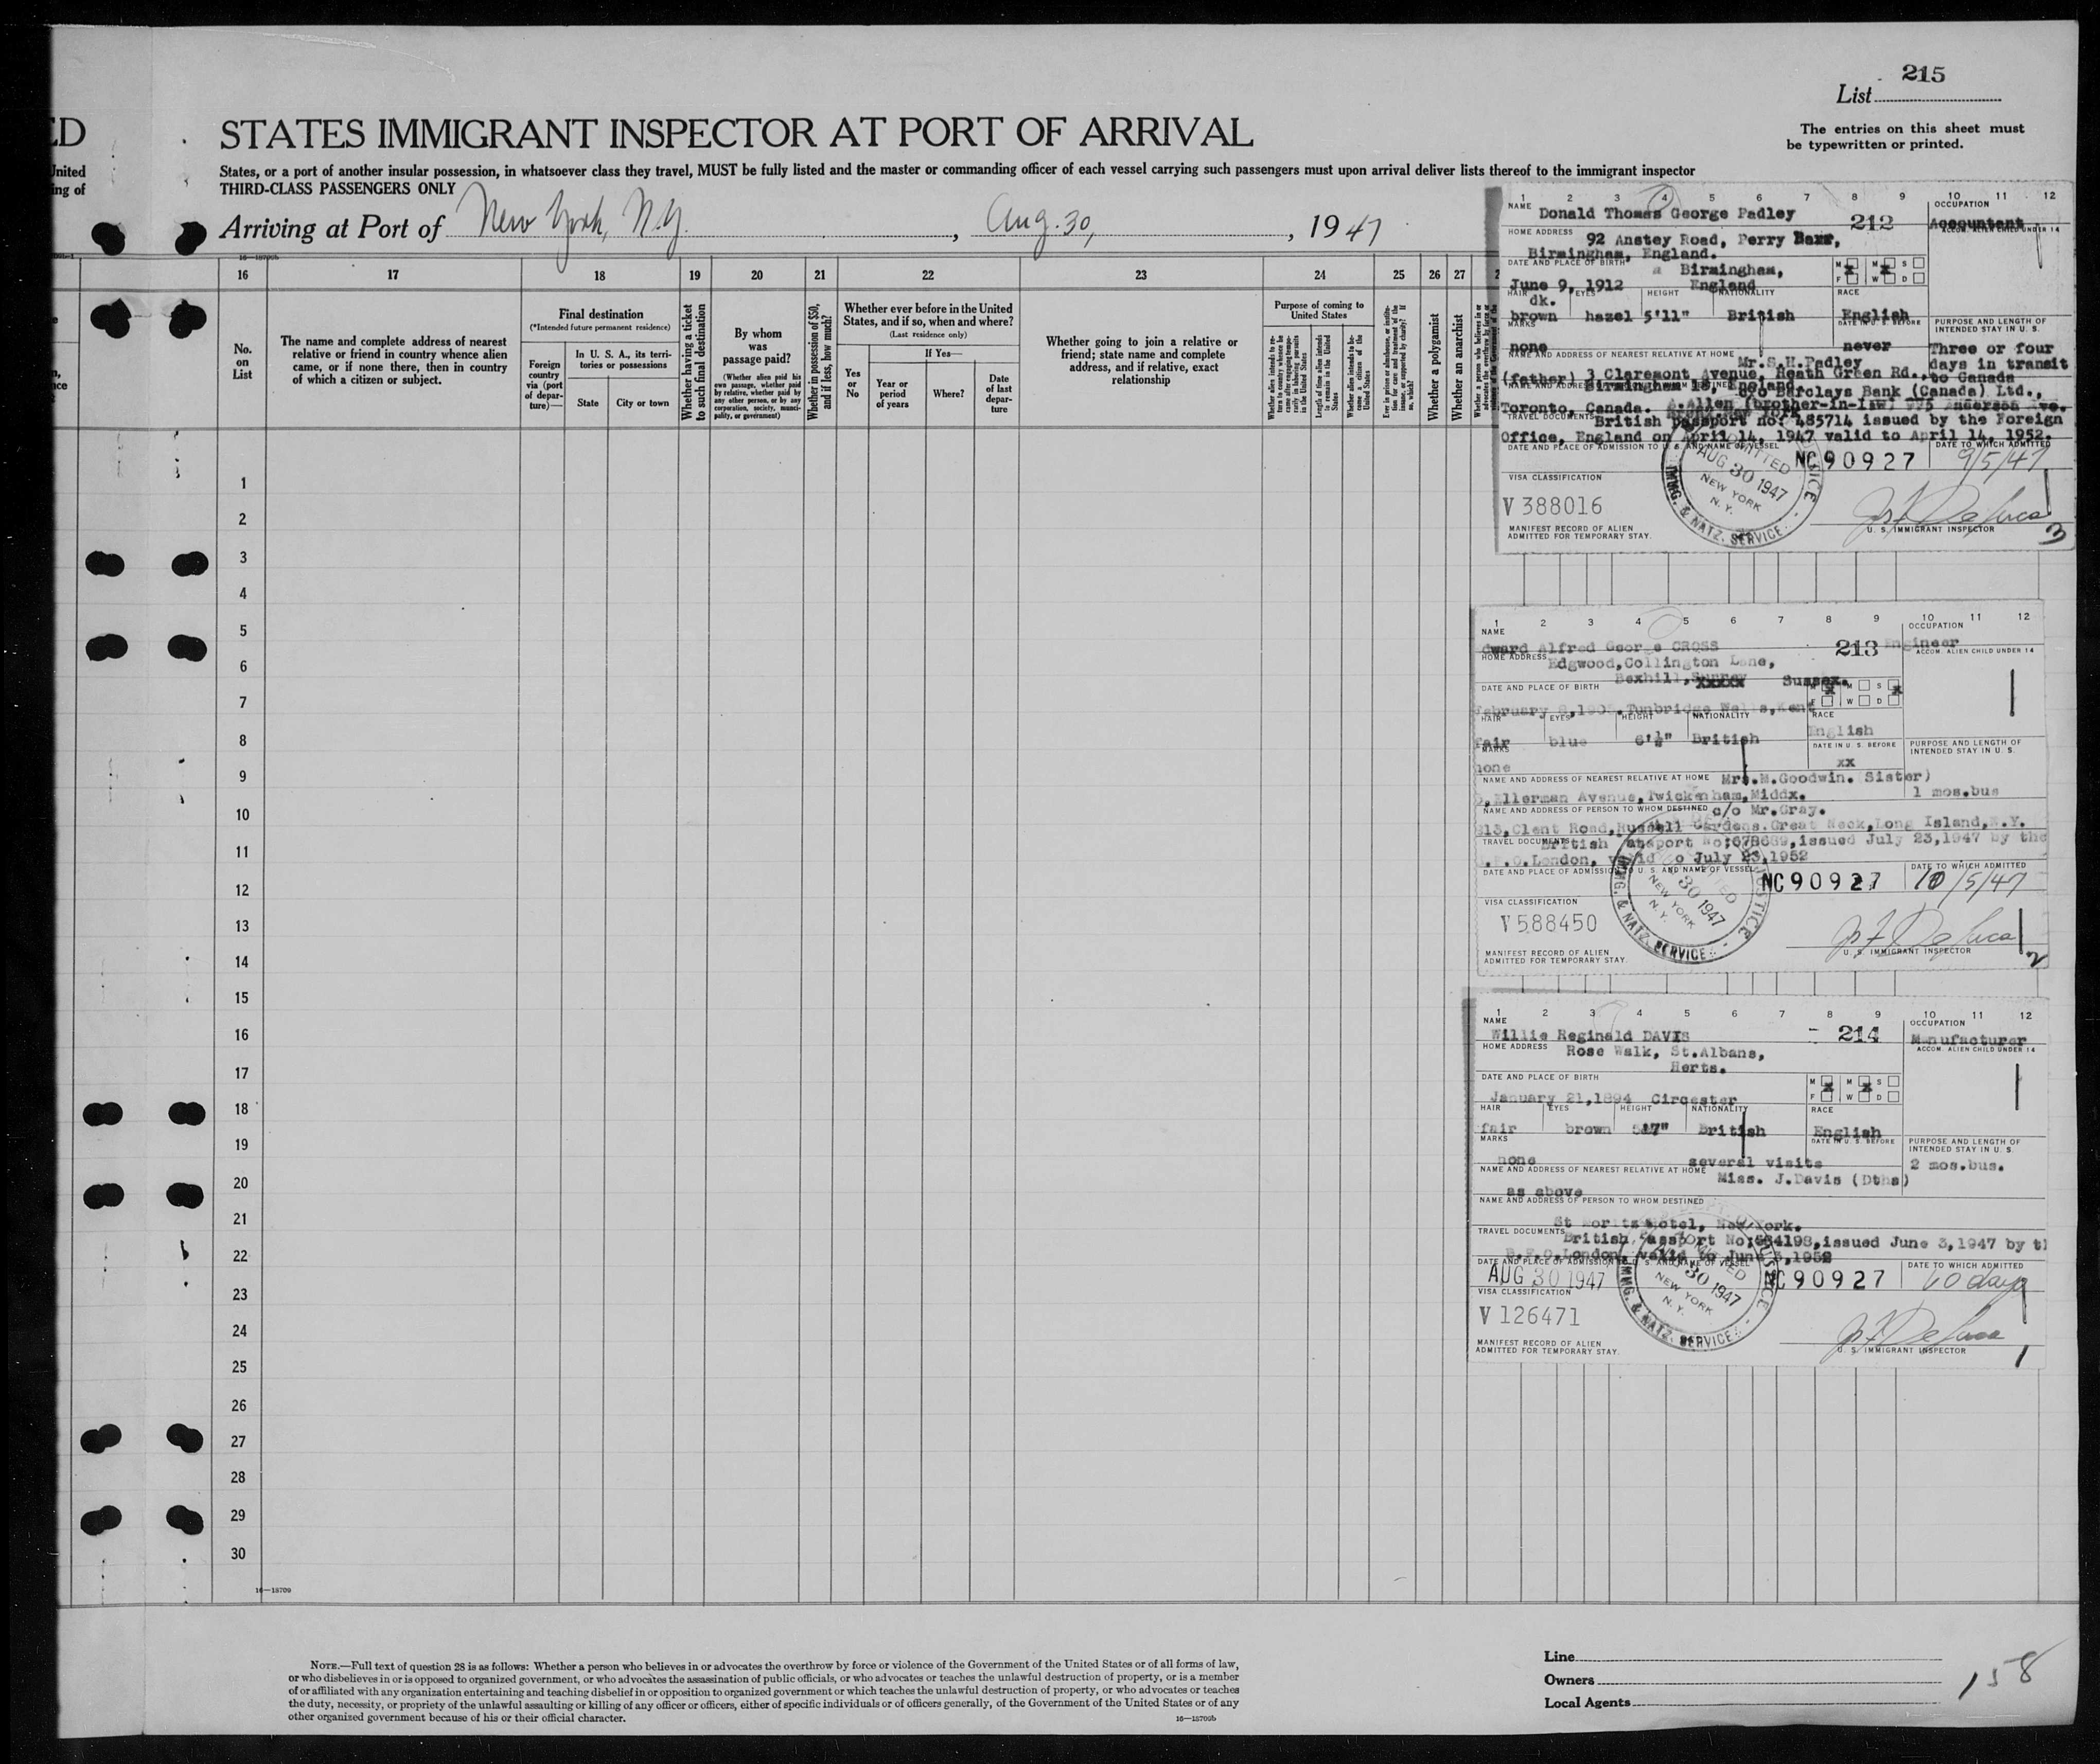 215
List
ED
STATES IMMIGRANT INSPECTOR AT PORT OF ARRIVAL
The entries on this sheet must
be typewritten or printed.
United
ing of
States, or a port of another insular possession, in whatsoever class they travel, MUST be fully listed and the master or commanding officer of each vessel carrying such passengers must upon arrival deliver lists thereof to the immigrant inspector
THIRD-CLASS PASSENGERS ONLY
Arriving at Port of New York, N.Y. , Aug. 30, , 1947
16—18709b
16 17 18 19 20 21 22 23 24 25 26 27 2
No.
on
List
The name and complete address of nearest
relative or friend in country whence alien
came, or if none there, then in country
of which a citizen or subject.
Final destination
(*Intended future permanent residence)
Foreign
country
via (port
of depar-
ture)—
In U. S. A., its terri-
tories or possessions
State
City or town
Whether having a ticket
to such final destination
By whom
was
passage paid?
(Whether alien paid his
own passage, whether paid
by relative, whether paid
by any other person, or by any
corporation, society, munici-
pality, or government)
Whether in possession of $50,
and if less, how much?
Whether ever before in the United
States, and if so, when and where?
(Last residence only)
Yes
or
No
If Yes—
Year or
period
of years
Where?
Date
of last
depar-
ture
Whether going to join a relative or
friend; state name and complete
address, and if relative, exact
relationship
Purpose of coming to
United States
Whether alien intends to re-
turn to country whence he
came after engaging tempo-
rarily in laboring pursuits
in the United States
Length of time alien intends
to remain in the United
States
Whether alien intends to be-
come a citizen of the
United States
Whether a polygamist
Whether an anarchist
1
2
3
4
5
6
7
8
9
10
11
12
13
14
15
16
17
18
19
20
21
22
23
24
25
26
27
28
29
30
16—18709
1 2 3 4 5 6 7 8 9 10 11 12
NAME Donald Thomas George Padley 212
OCCUPATION
Accountant
ACCOM. ALIEN CHILD UNDER 14
HOME ADDRESS 92 Anstey Road, Perry Barr,
Birmingham, England.
DATE AND PLACE OF BIRTH Birmingham,
June 9, 1912 England
M M S
F W D
HAIR EYES HEIGHT NATIONALITY RACE
dk.
brown hazel 5'11" British English
MARKS DATE IN U. S. BEFORE
none never
PURPOSE AND LENGTH OF
INTENDED STAY IN U. S.
Three or four
days in transit
to Canada
NAME AND ADDRESS OF NEAREST RELATIVE AT HOME Mr.S.H.Padley
(father) 3 Claremont Avenue, Heath Green Rd.,
Birmingham 18, England
c/o Barclays Bank (Canada) Ltd.,
Toronto, Canada. A.Allen (brother-in-law)
TRAVEL DOCUMENTS British passport no: 485714 issued by the Foreign
Office, England on April 14, 1947 valid to April 14, 1952.
DATE AND PLACE OF ADMISSION TO U. S. AND NAME OF VESSEL
NC90927
DATE TO WHICH ADMITTED
9/5/47
ADMITTED
AUG 30 1947
NEW YORK
N. Y.
IMMG. & NATZ. SERVICE
VISA CLASSIFICATION
V 388016
MANIFEST RECORD OF ALIEN
ADMITTED FOR TEMPORARY STAY.
U. S. IMMIGRANT INSPECTOR
3
1 2 3 4 5 6 7 8 9 10 11 12
NAME
dward Alfred George CROSS 213
OCCUPATION
Engineer
ACCOM. ALIEN CHILD UNDER 14
HOME ADDRESS Edgwood,Collington Lane,
Bexhill, Sussex.
DATE AND PLACE OF BIRTH
M S
F W D
Tunbridge Wells,Kent
HAIR EYES HEIGHT NATIONALITY RACE
fair blue 6'½" British English
MARKS DATE IN U. S. BEFORE
none xx
PURPOSE AND LENGTH OF
INTENDED STAY IN U. S.
1 mos.bus
NAME AND ADDRESS OF NEAREST RELATIVE AT HOME Mrs.M.Goodwin. Sister)
Ellerman Avenue,Twickenham,Middx.
NAME AND ADDRESS OF PERSON TO WHOM DESTINED c/o Mr.Gray.
Clent Road,Russell Gardens.Great Neck,Long Island,N.Y.
TRAVEL DOCUMENTS British issued July 23,1947 by the
F.O.London, July 23,1952
DATE AND PLACE OF ADMISSION TO U. S. AND NAME OF VESSEL
NC90927
DATE TO WHICH ADMITTED
10/5/47
30 1947
NEW YORK
N. Y.
IMMG. & NATZ. SERVICE
VISA CLASSIFICATION
V 588450
MANIFEST RECORD OF ALIEN
ADMITTED FOR TEMPORARY STAY.
U. S. IMMIGRANT INSPECTOR
2
1 2 3 4 5 6 7 8 9 10 11 12
NAME
Willie Reginald DAVIS 214
OCCUPATION
Manufacturer
ACCOM. ALIEN CHILD UNDER 14
HOME ADDRESS Rose Walk, St.Albans,
Herts.
DATE AND PLACE OF BIRTH
M M S
F W D
January 21,1894 Circester
HAIR EYES HEIGHT NATIONALITY RACE
fair brown British English
MARKS DATE IN U. S. BEFORE
none several visits
PURPOSE AND LENGTH OF
INTENDED STAY IN U. S.
2 mos.bus.
NAME AND ADDRESS OF NEAREST RELATIVE AT HOME Miss. J.Davis (Dthe)
as above
NAME AND ADDRESS OF PERSON TO WHOM DESTINED
St Moritz Hotel, New York.
TRAVEL DOCUMENTS British Passport issued June 3,1947 by t
London, valid to June 3,1952
DATE AND PLACE OF ADMISSION TO U. S. AND NAME OF VESSEL
AUG 30 1947
NC90927
DATE TO WHICH ADMITTED
60 days
30 1947
NEW YORK
N. Y.
IMMG. & NATZ. SERVICE
VISA CLASSIFICATION
V 126471
MANIFEST RECORD OF ALIEN
ADMITTED FOR TEMPORARY STAY.
U. S. IMMIGRANT INSPECTOR
1
NOTE.—Full text of question 28 is as follows: Whether a person who believes in or advocates the overthrow by force or violence of the Government of the United States or of all forms of law,
or who disbelieves in or is opposed to organized government, or who advocates the assassination of public officials, or who advocates or teaches the unlawful destruction of property, or is a member
of or affiliated with any organization entertaining and teaching disbelief in or opposition to organized government or which teaches the unlawful destruction of property, or who advocates or teaches
the duty, necessity, or propriety of the unlawful assaulting or killing of any officer or officers, either of specific individuals or of officers generally, of the Government of the United States or of any
other organized government because of his or their official character.
16—18709b
Line
Owners
Local Agents
158